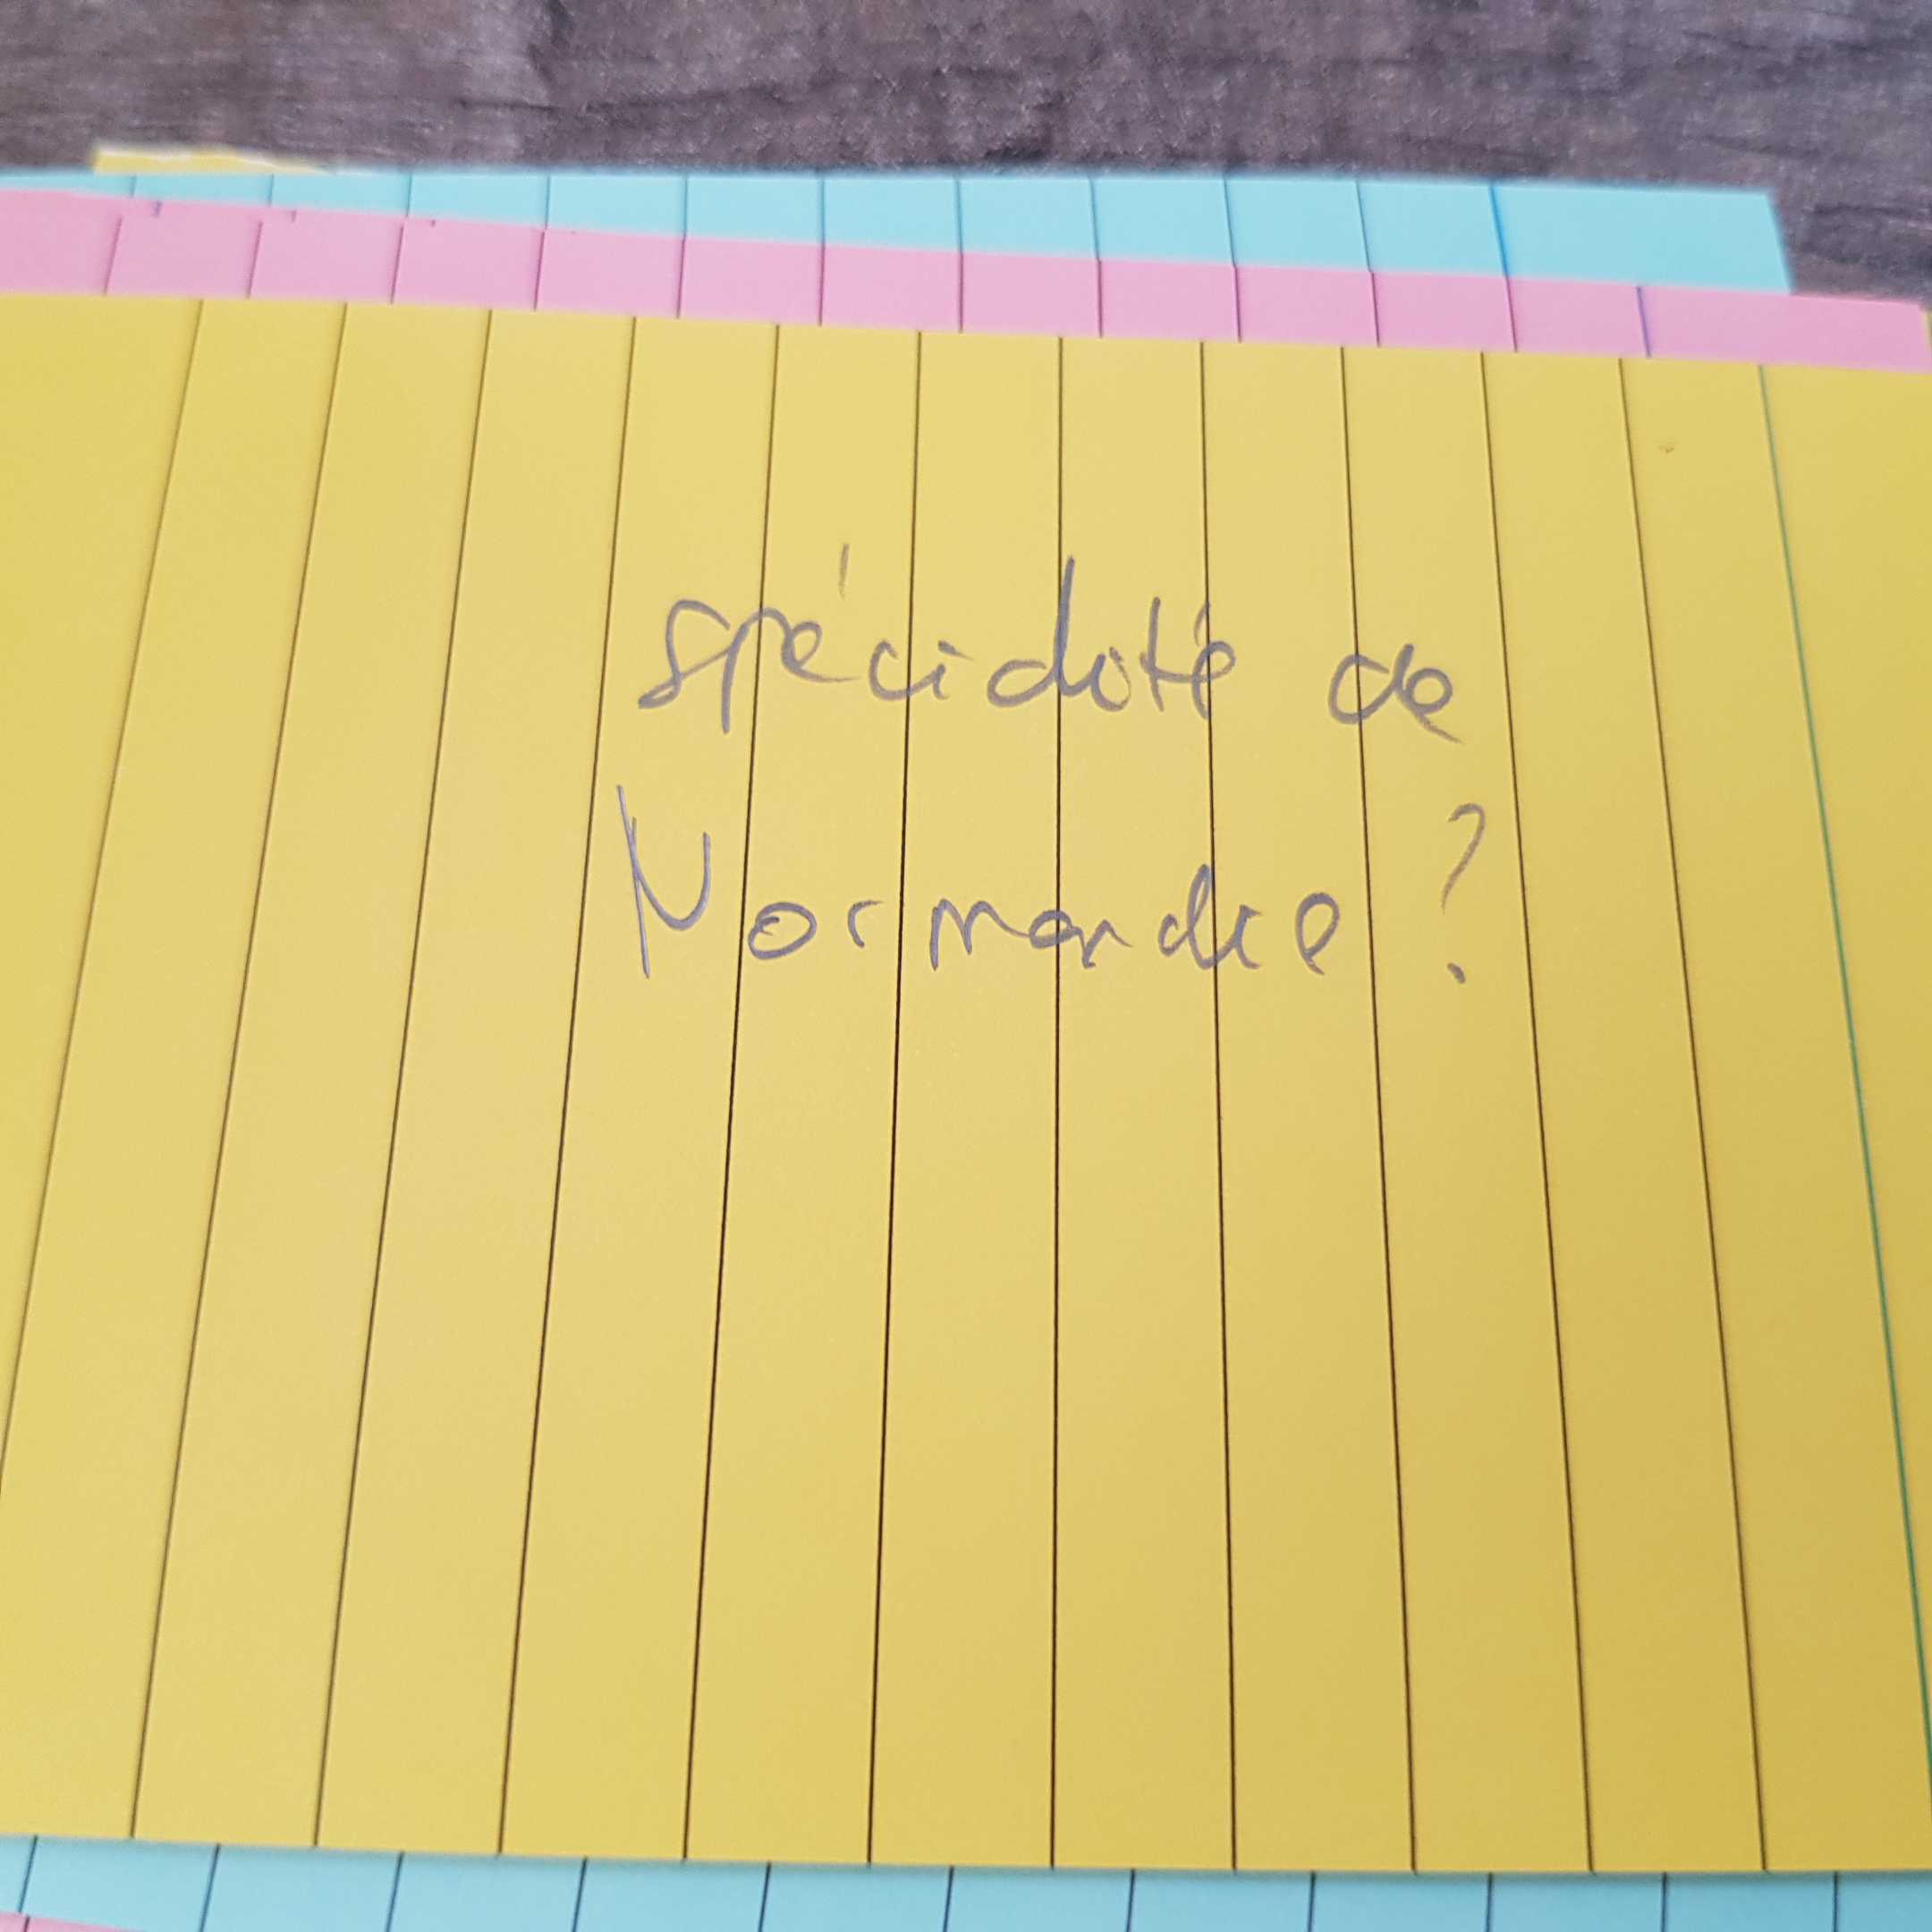 spécialité de
Normandie ?